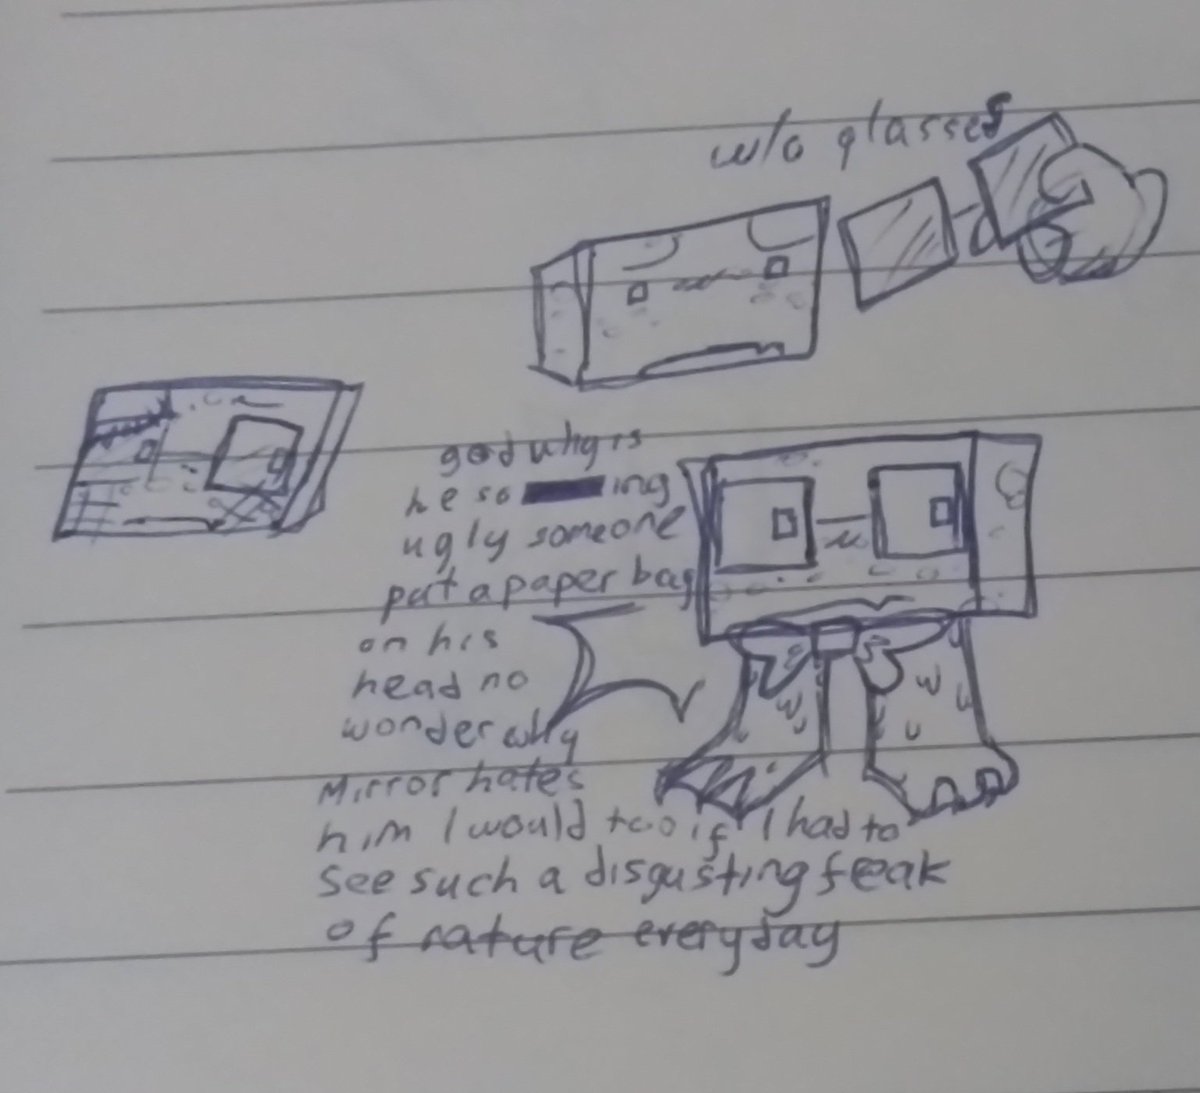 w/o glasses
god why is
he so ing
ugly someone
put a paper bag
on his
head no
wonder why
Mirror hates
him I would too if I had to
see such a disgusting freak
of nature everyday